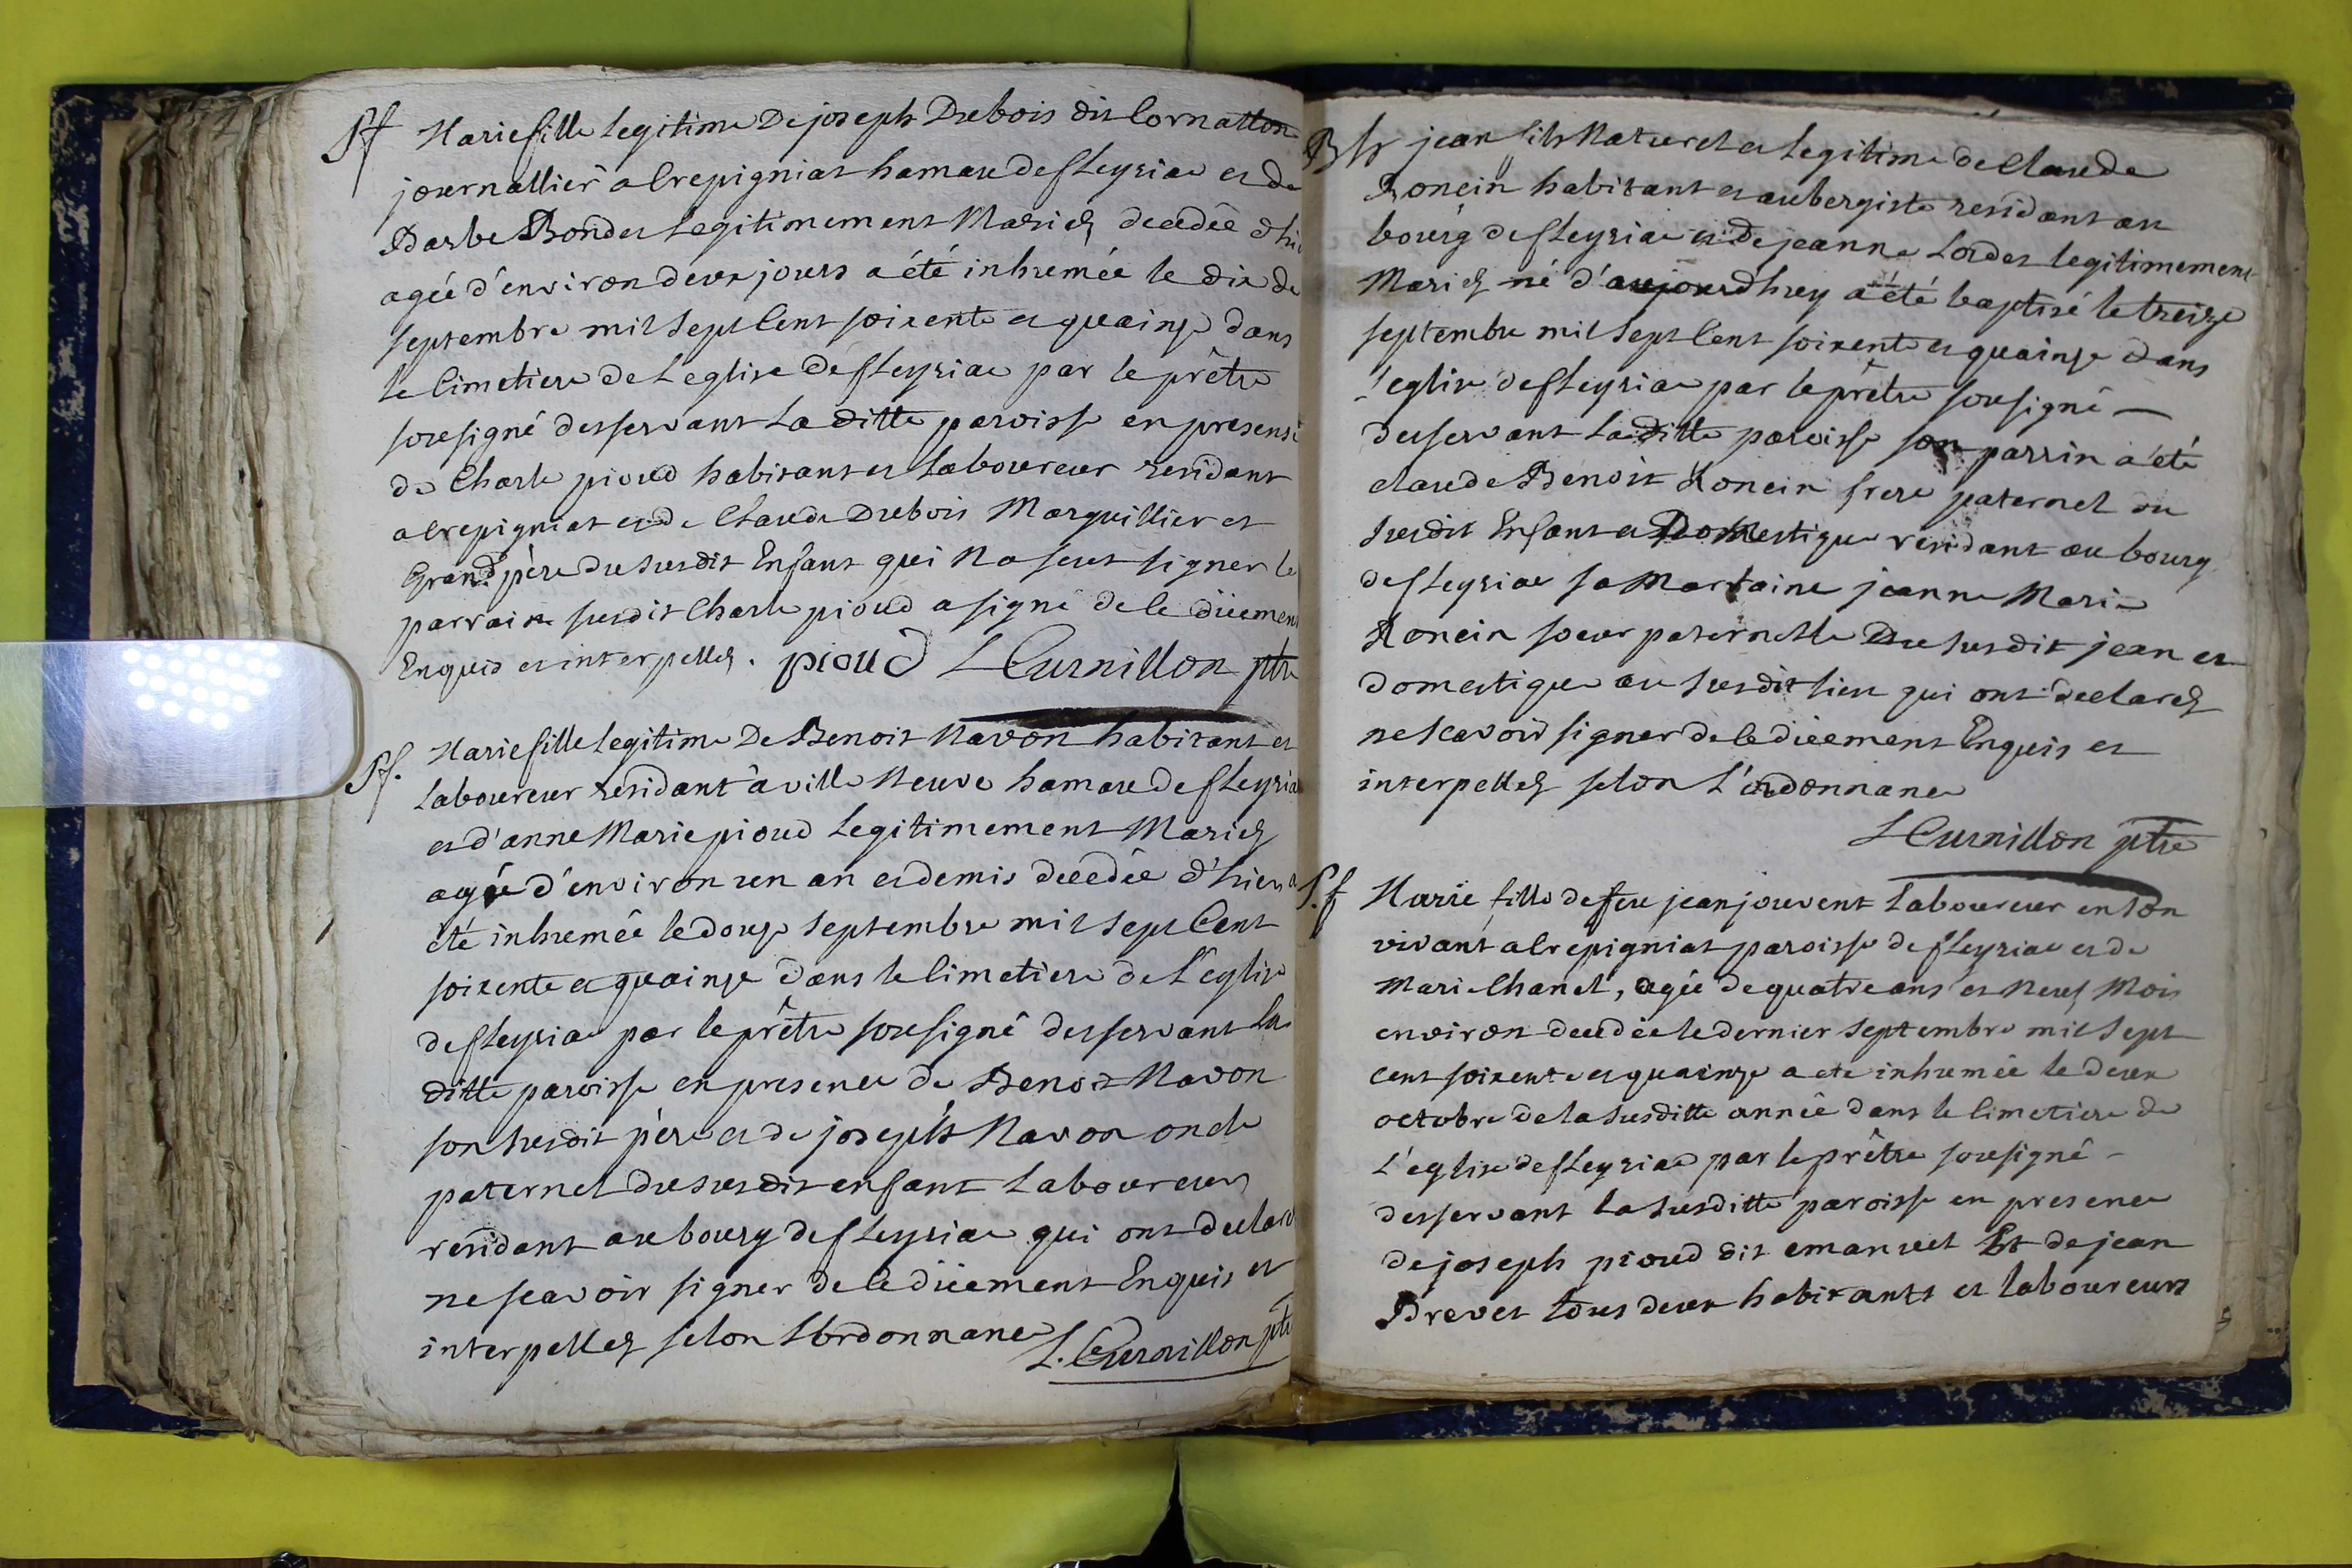 Sf Marie fille legitime De joseph Dubois dit Cornatton
journallier a Crepigniat hamau de fleyriac et de
Barbe Bondet legitimement Mariez decedée d'hi
agée d'environ deux jours a été inhumée le dix de
septembre mil sept Cent soixente et quainze dans
le Cimetiere de L'eglise de fleyriac par le prêtre
sousigné desservant La ditte paroisse en presensé
de Charle pioud habitant et Laboureur residant
a Crepigniat et de Claude Dubois Marguillier et
Grand père du susdit Enfant qui Na seut signer le
parrain susdit Charle pioud a signé de le düement
Enquis et interpellez. pioud L Curnillon ptre
Sf. Marie fille legitime De Benoit Navon habitant et
Laboureur residant à ville Neuve hamau de fleyria
et d'anne Marie pioud Legitimement Mariez
agée d'environ un an et demis decedée d'hier a
été inhumée le douze septembre mil sept Cent
soixente et quainze dans le Cimetiere de L'eglise
de fleyriac par le prêtre sousigné desservant La
ditte paroisse en presence de Benoit Navon
son susdit père et de joseph Navon oncle
paternel du susdit enfant Laboureurs
residant au bourg de fleyriac qui ont declaré
ne scavoir signer de le düement Enquis et
interpellez selon L'ordonnance L. Curnillon ptre
Bts jean fils Naturel et Legitime de Claude
Roncin habitant et aubergiste residant au
bourg de fleyriac et de jeanne Cordet legitimement
Mariez né d'aujourdhuy a été baptisé le treize
septembre mil sept Cent soixente et quainze dans
l'eglise de fleyriac par le prêtre sousigné
desservant La ditte paroisse son parrin a été
claude Benoit Roncin frere paternel du
susdit Enfant et Domestique residant au bourg
de fleyriac sa Marraine jeanne Marie
Roncin soeur paternelle Du susdit jean et
domestique au susdit lieu qui ont declarez
ne scavoir signer de le düement Enquis et
interpellez selon L'ordonnance
L Curnillon ptre
S.f Marie fille de feu jean jouvent Laboureur en son
vivant a Crepigniat paroisse de fleyriac et de
Marie Chanel, agée de quatre ans et Neuf Mois
environ decedée le dernier septembre mil sept
cent soixente et quainze a ete inhumée le deux
octobre de la susditte année dans le Cimetiere de
L'eglise de fleyriac par le prêtre sousigné
desservant la susditte paroisse en presence
de joseph pioud dit emanuel Et de jean
Brevet tous deux habitants et laboureurs